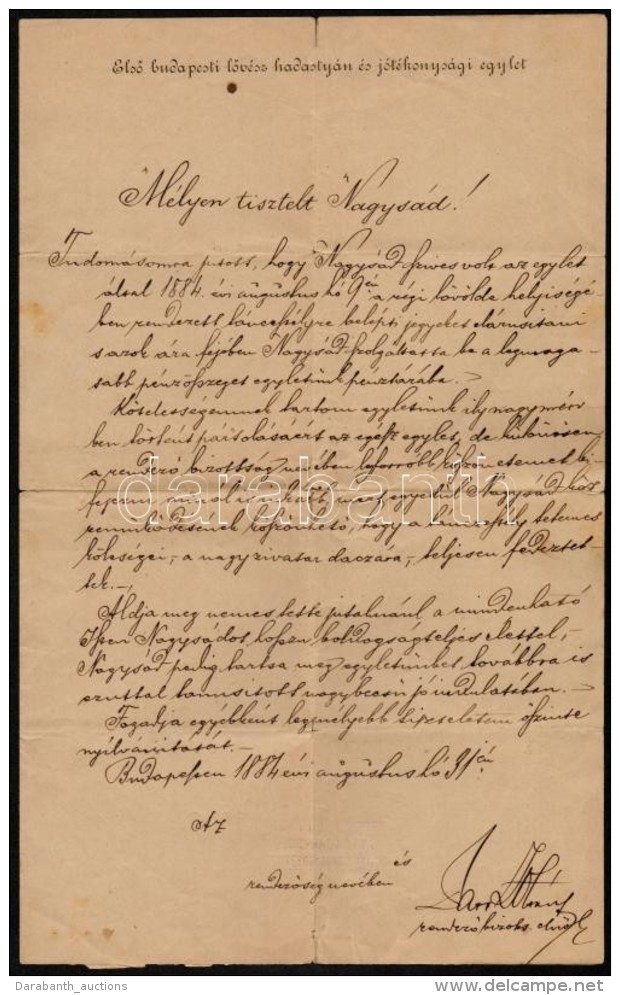 Első budapesti lövész hadastyán és jótékonysági egylet
Mélyen tisztelt Nagysád!
Tudomásomra jutott, hogy Nagysád szives volt az egylet
által 1884. évi augustus hó 9én a régi lövölde helyiségé-
ben rendezett tánczestélyre belépti jegyeket elárusitani
s azok ára fejében Nagysád szolgáltatta be a legmaga-
sabb pénzösszeget egyletünk pénztárába. –
Kötelességemnek tartom egyletünk ily nagymérv-
ben történt pártolásáért az egész egylet, de különösen
a rendező bizottság nevében legforróbb köszönetemet ki-
fejezni, minél inkább, mert egyedül Nagysád köz-
remüködésének köszönhető, hogy a tetemes
költségei, – a nagy zivatar daczára, – teljesen fedeztet-
tek. –
Áldja meg nemes tette jutalmául a mindenható
Isten Nagysádot, hosszu boldogságteljes élettel, –
Nagysád pedig tartsa meg egyletünket továbbra is
ezuttal tanusitott nagybecsü jóindulatában. –
Fogadja egyébként legmélyebb tiszteletem őszinte
nyilvánitását. –
Budapesten 1884 évi augustus hó 31én
Az
és
rendezőség nevében
rendező bizotts. elnök
darabanth
© Darabanth_auctions
www.delcampe.net